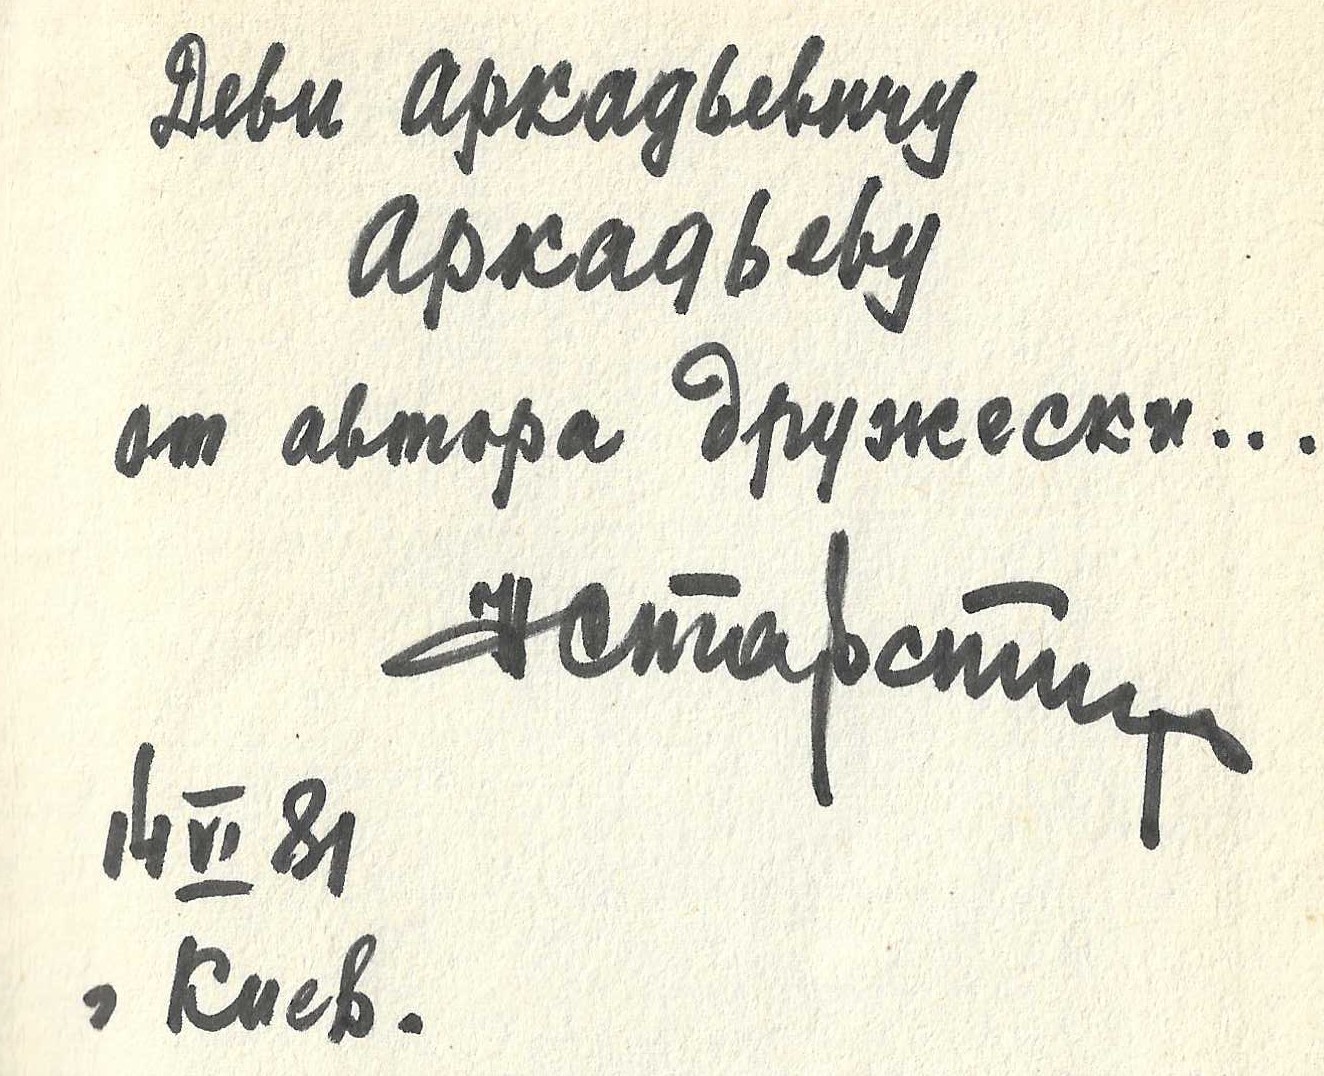 Деви Аркадьевичу
Аркадьеву
от автора дружески...
14 VI 81
Киев.